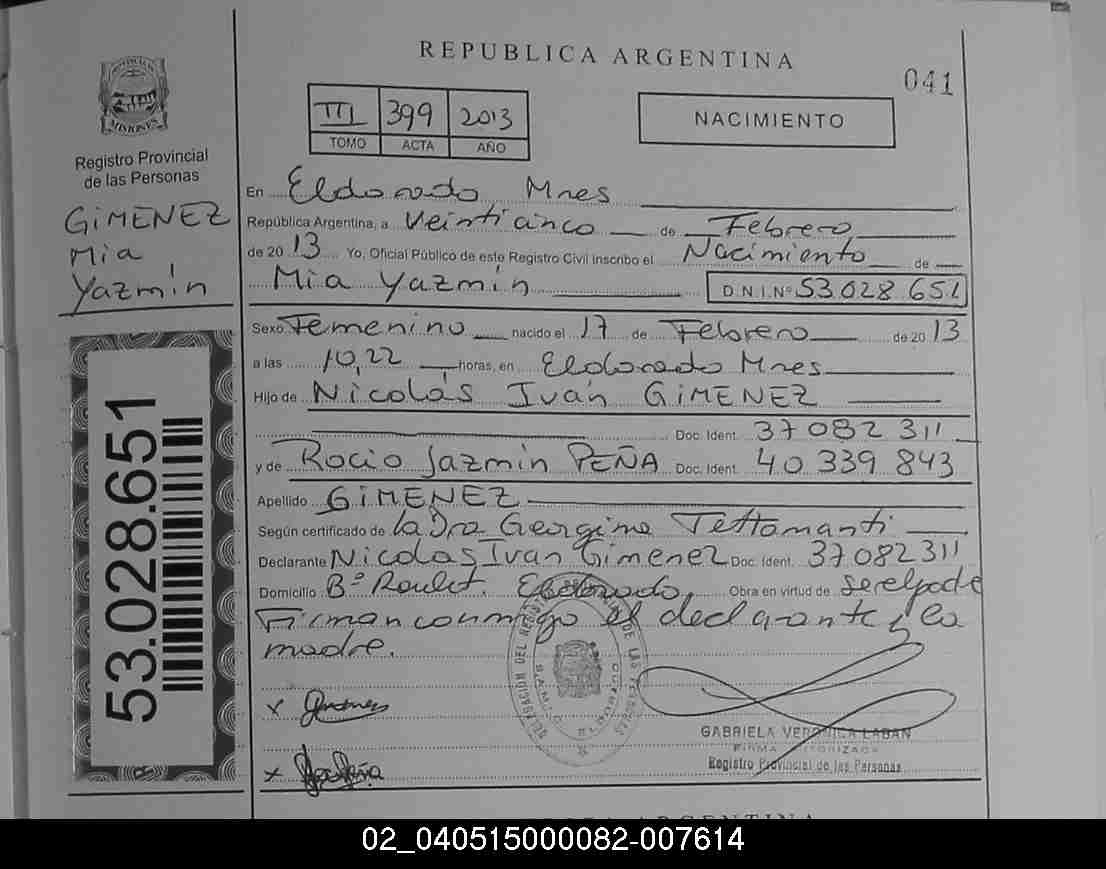 REPUBLICA ARGENTINA
041
PROVINCIA DE
MISIONES
Registro Provincial
de las Personas
GiMENEZ
Mia
Yazmín
53.028.651
III 399 2013
TOMO ACTA AÑO
NACIMIENTO
En Eldorado Mnes
República Argentina, a Veinticinco de Febrero
de 2013 Yo, Oficial Público de este Registro Civil inscribo el Nacimiento de
Mia Yazmín D.N.I.Nº 53 028 651
Sexo Femenino nacido el 17 de Febrero de 2013
a las 10,22 horas, en Eldorado Mnes
Hijo de Nicolás Iván GiMENEZ
Doc. Ident. 37 082 311
y de Rocio Jazmín PEÑA Doc. Ident. 40 339 843
Apellido GiMENEZ
Según certificado de la Dra Georgina Tettamanti
Declarante Nicolas Ivan Gimenez Doc. Ident. 37 082 311
Domicilio Bº Eldorado Obra en virtud de ser el padre
Firman conmigo el declarante y la
madre.
x Gimenez
x Peña
GABRIELA VERONICA LABAN
FIRMA AUTORIZADA
Registro Provincial de las Personas
REPUBLICA ARGENTINA
02_040515000082-007614